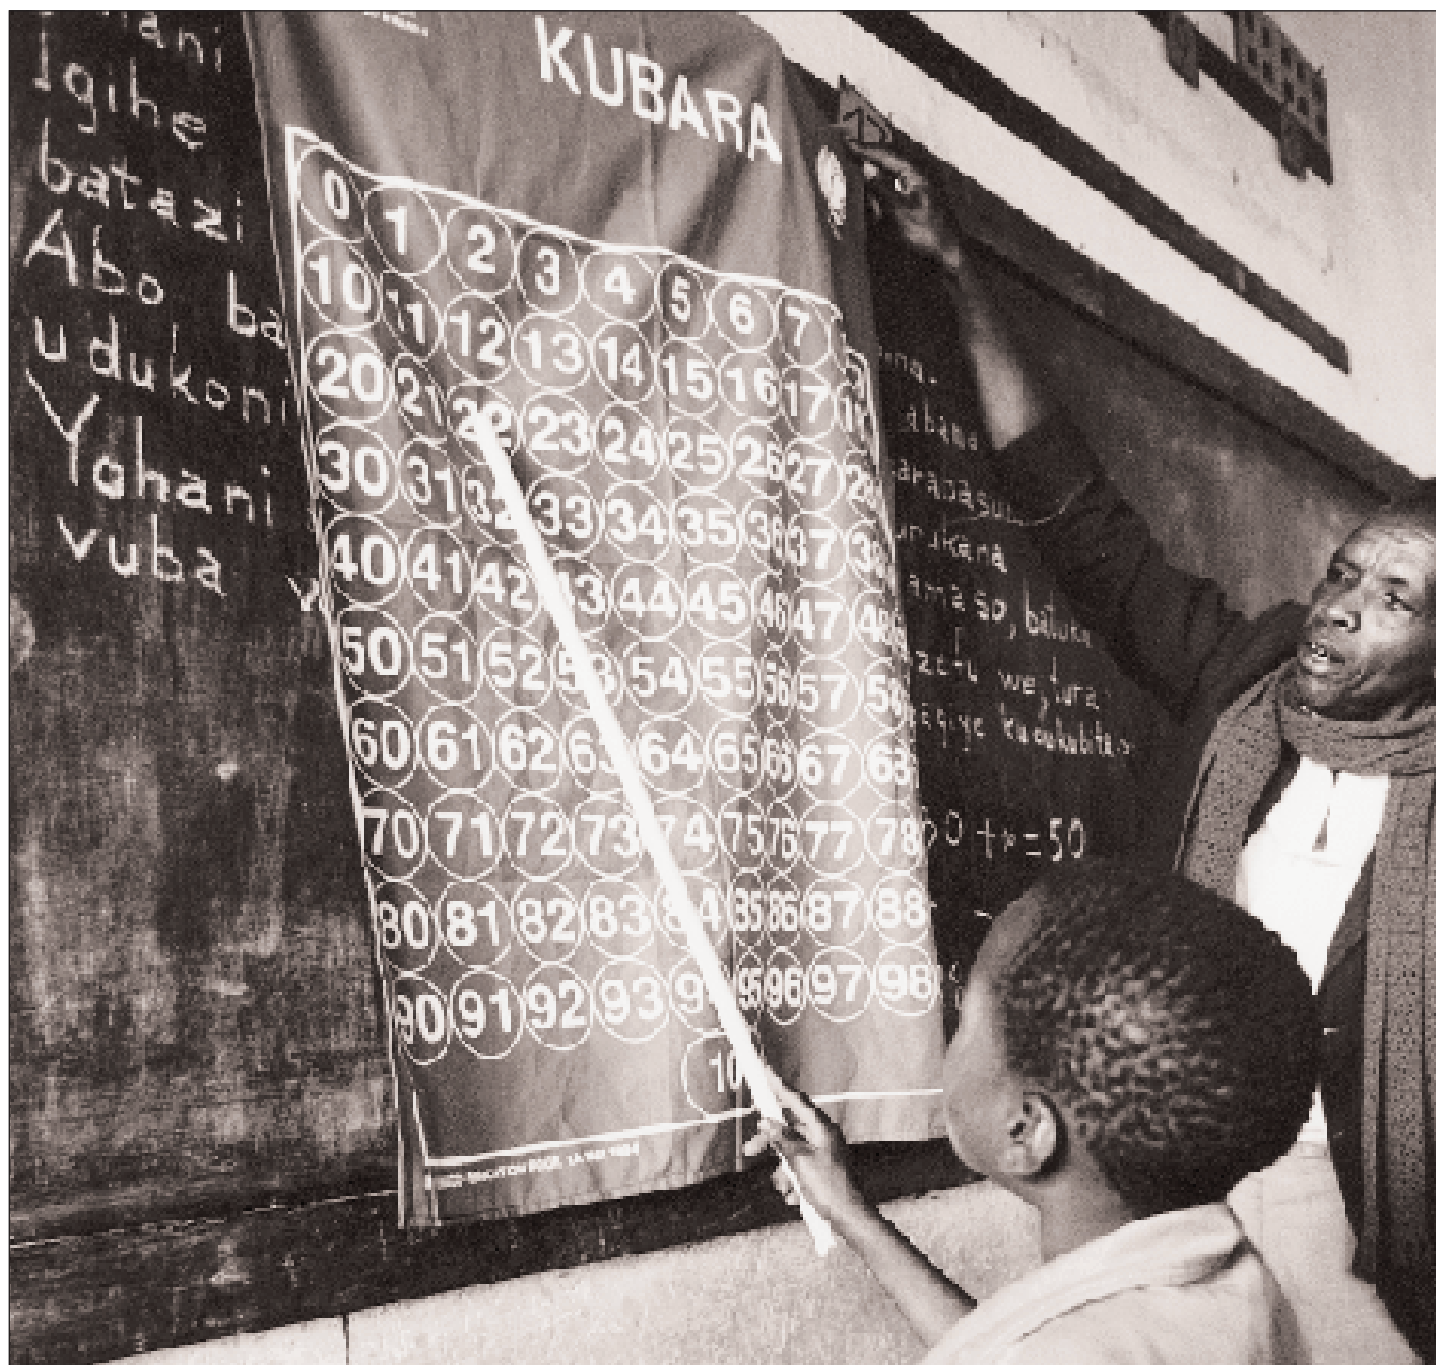 Igihe
batazi
Abo ba
udukoni
Yohani
vuba
KUBARA
0 1 2 3 4 5 6 7
10 11 12 13 14 15 16 17
20 21 22 23 24 25 26 27
30 31 32 33 34 35 36 37 38
40 41 42 43 44 45 46 47 48
50 51 52 53 54 55 56 57 58
60 61 62 63 64 65 66 67 68
70 71 72 73 74 75 76 77 78
80 81 82 83 84 85 86 87 88
90 91 92 93 94 95 96 97 98
10
abana
urukana
=50